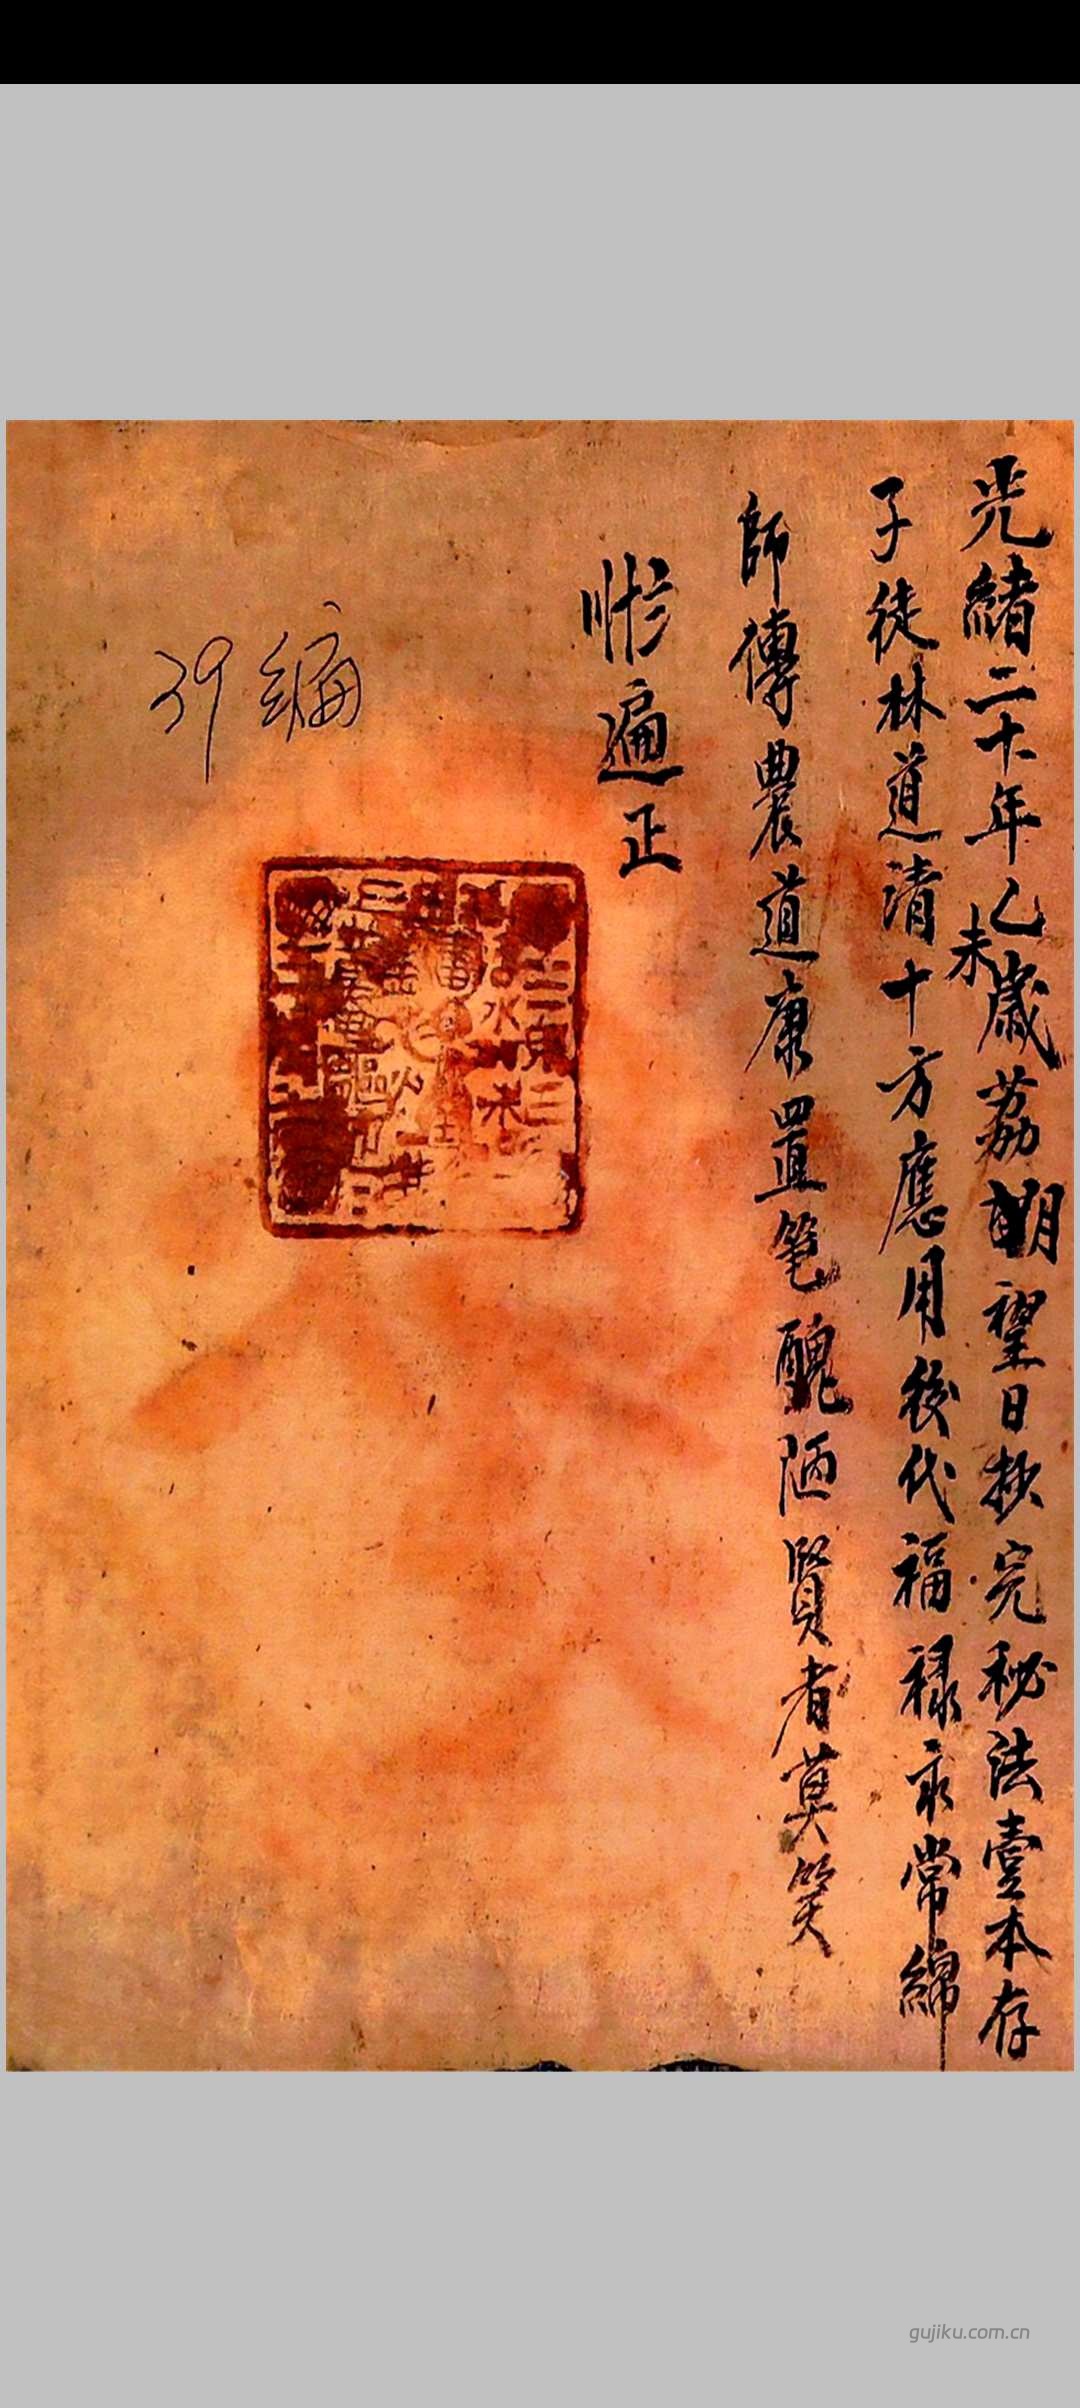 光緒二十年乙未歲荔朔望日抄完秘法壹本存
子徒林道清十方應用後代福祿永常綿
師傳農道康置笔醜陋賢者莫笑
遍正
39編
gujiku.com.cn